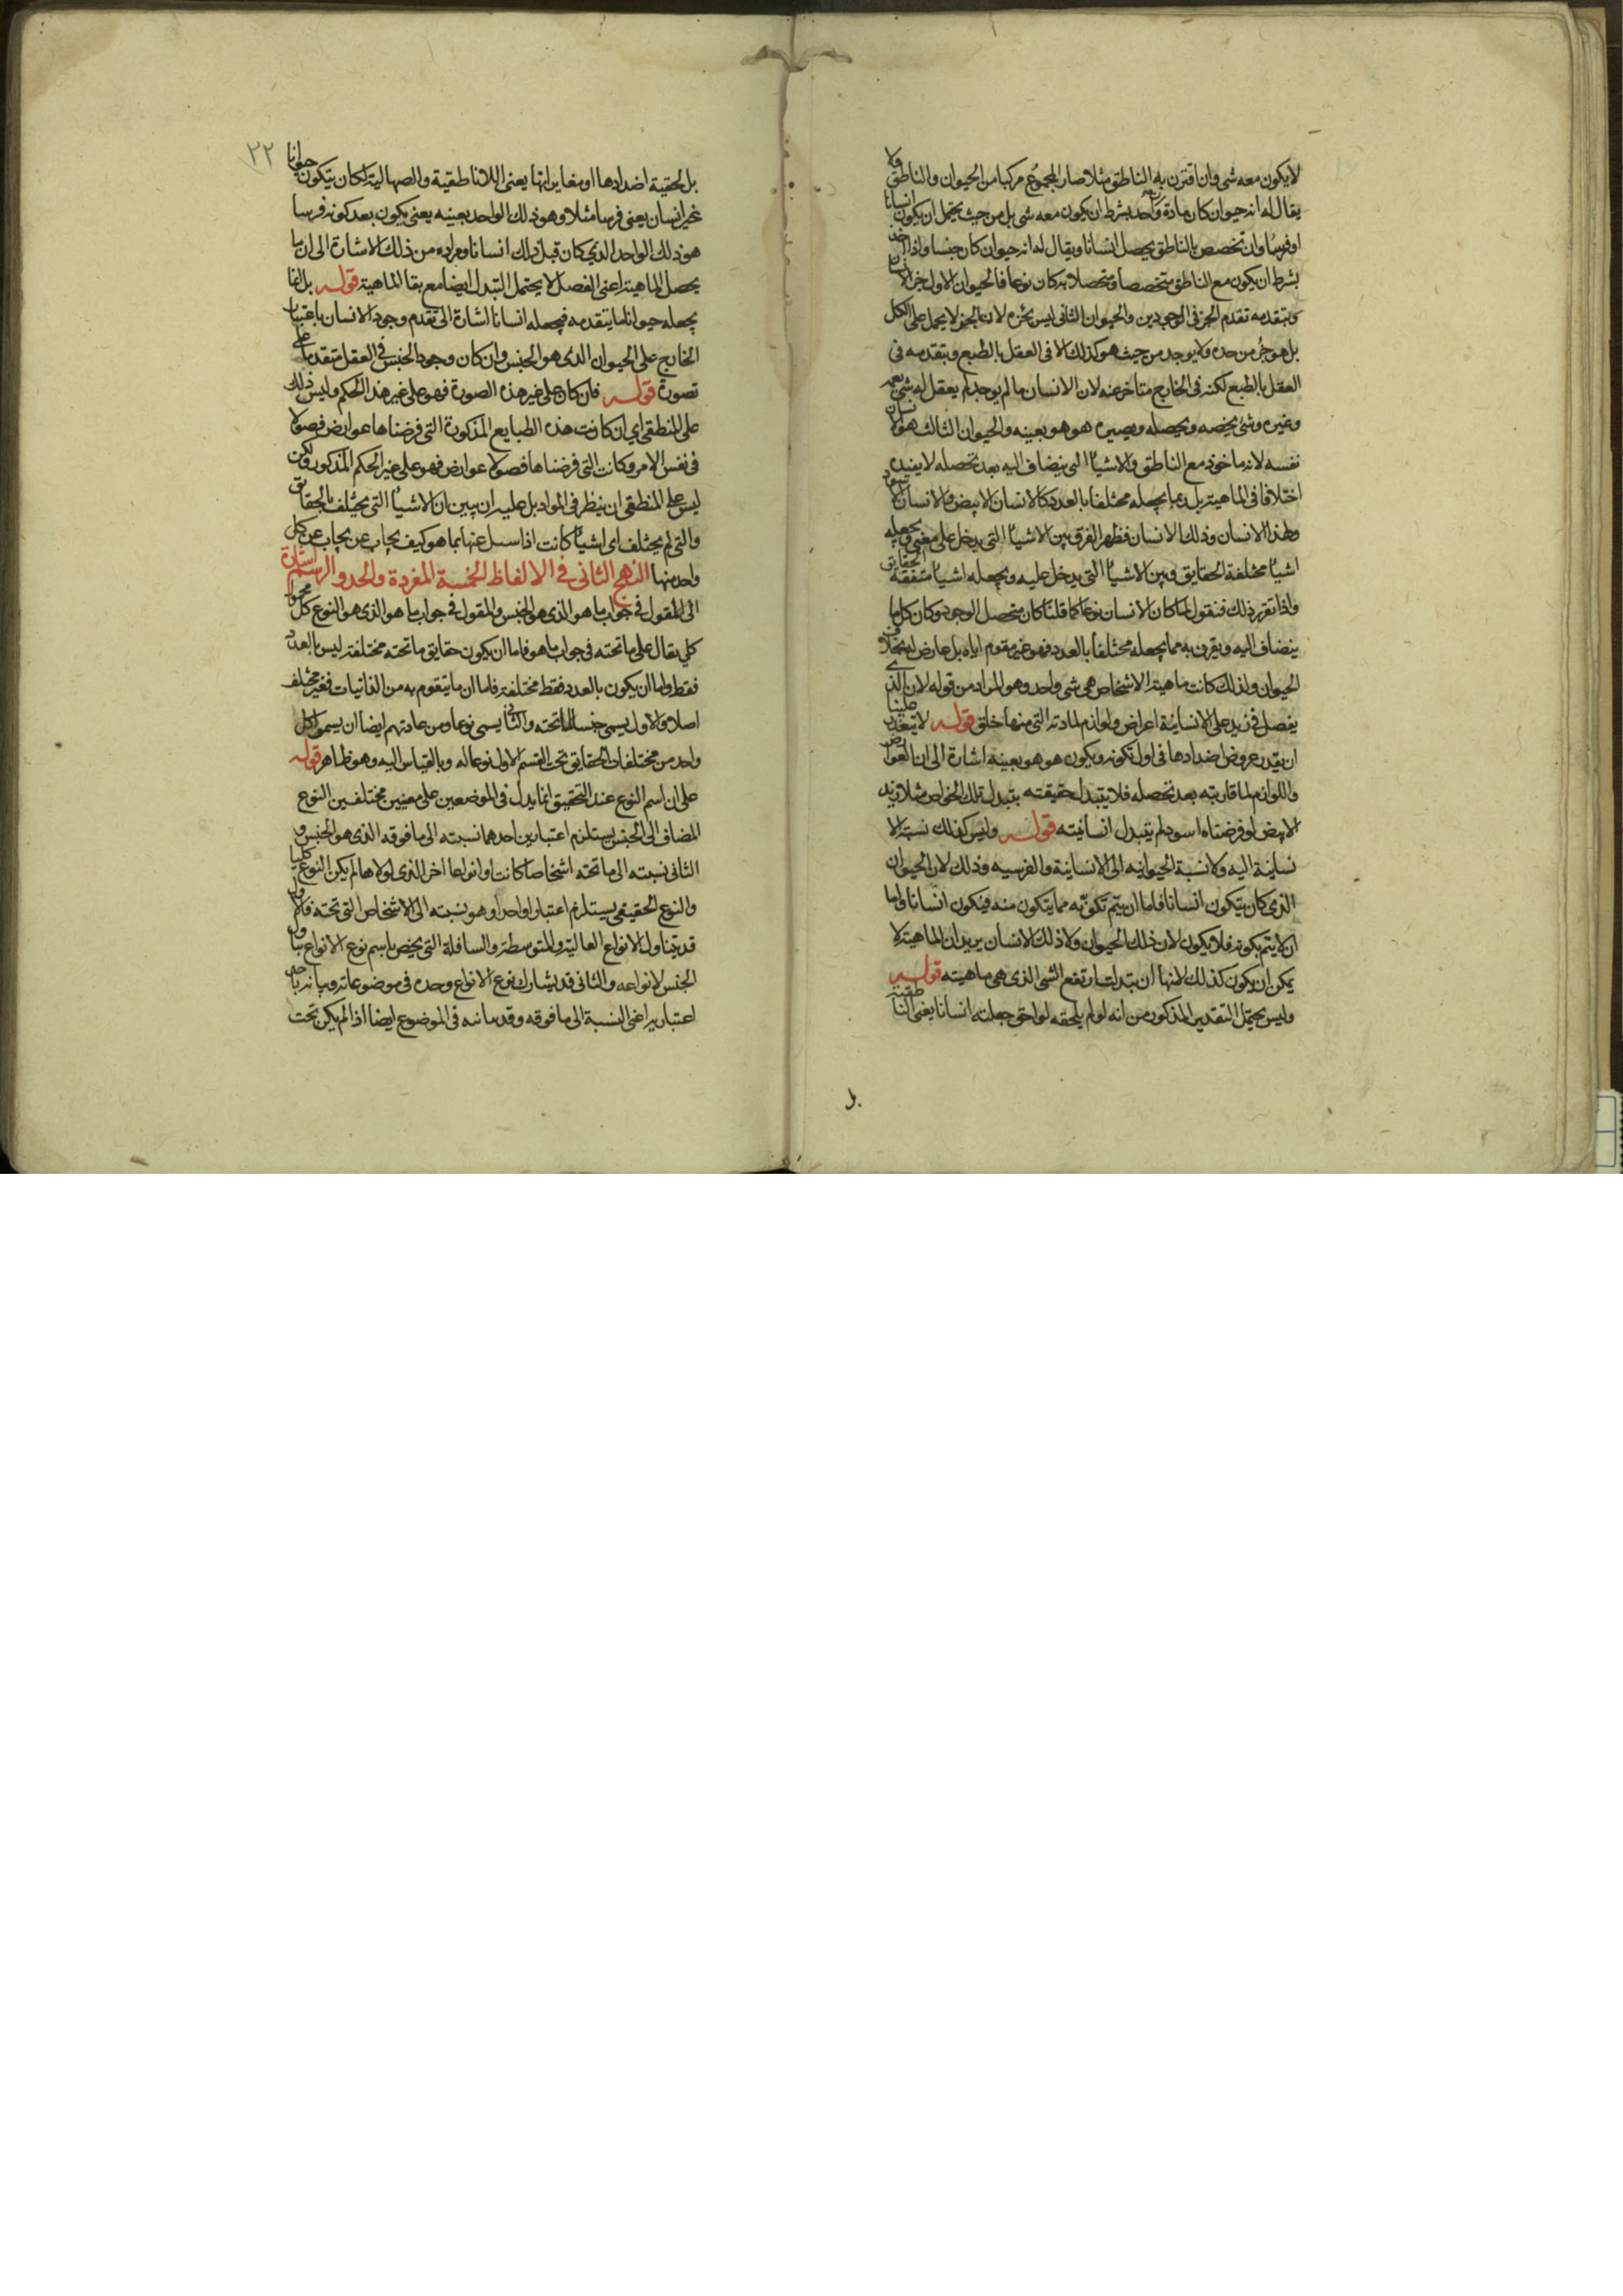 لا يكون معه شى وان اقترن به الناطق مثلا صار المجموع مركبا من الحيوان والناطق ولا
يقال له انه حيوان كان مادة واحد بشرط ان يكون معه شى بل من حيث يحتمل ان يكون انسانا
او فرسا وان تخصص بالناطق يحصل انسانا ويقال له انه حيوان كان جنسا واذا اخذ
بشرط ان يكون مع الناطق متخصصا ومتحصلا به كان نوعا فالحيوان الاول جزء الانسان
ويتقدمه تقدم الجزء فى الوجودين والحيوان الثانى ليس بجزء لان الجزء لا يحمل على الكل
بل هو جزء من حده ولا يوجد من حيث هو كذلك الا فى العقل بالطبع ويتقدمه فى
العقل بالطبع لكنه فى الخارج متاخر عنه لان الانسان ما لم يوجد لم يعقل له شى يعمه
وغيره وشى يخصه ويحصله ويصيره هو هو بعينه والحيوان الثالث هو الانسان
نفسه لانه ماخوذ مع الناطق والاشياء التى ينضاف اليه بعد تحصله لا يفيده
اختلافا فى الماهية بل ربما يجعله مختلفا بالعدد كالانسان الابيض والانسان الاسود
وهذا الانسان وذلك الانسان فظهر الفرق بين الاشياء التى يدخل على معنى ويجعله
اشياء مختلفة الحقايق وبين الاشياء التى يدخل عليه ويجعله اشياء متفقة الحقايق
واذا تقرر ذلك فنقول لما كان الانسان نوعا كما قلنا كان متحصل الوجود وكان كل ما
ينضاف اليه ويقرن به مما يجعله مختلفا بالعدد فهو غير مقوم اياه بل عارض له بخلاف
الحيوان ولذلك كانت ماهية الاشخاص هى شى واحد وهو المراد من قوله لان الذى
يفصل فى زيد على الانسانية اعراض ولوازم لمادته التى منها خلق قوله لا يتعذر علينا
ان يقدر عروض اضدادها فى اول تكونه ويكون هو هو بعينه اشارة الى ان العوارض
واللوازم لما قارنته بعد تحصله فلا يتبدل حقيقته بتبدل تلك الخواص مثلا زيد
الابيض لو فرضناه اسود لم يتبدل انسانيته قوله وليس كذلك نسبة الا
نسانية اليه ولا نسبة الحيوانيه الى الانسانية والفرسيه وذلك لان الحيوان
الذى كان يتكون انسانا فاما ان يتم تكونه مما يتكون منه فيكون انسانا واما
ان لا يتم تكونه فلا يكون لان ذلك الحيوان ولا ذلك الانسان يريد ان الماهية لا
يمكن ان يكون كذلك لانها ان تبدلت ارتفع الشى الذى هى ماهيته قوله
وليس يحتمل التقدير المذكور من انه لو لم يلحقه لواحق جعلته انسانا يعنى الناطقية
بل
٢٢
بل لحقية اضدادها او مغايراتها يعنى اللاناطقية والصهالية لكان يتكون حيوانا
غير انسان يعنى فرسا مثلا وهو ذلك الواحد بعينه يعنى يكون بعد كونه فرسا
هو ذلك الواحد الذى كان قبل ذلك انسانا ومراده من ذلك الاشارة الى ان ما
يحصل الماهية اعنى الفصل لا يحتمل التبدل ايضا مع بقا الماهية قوله بل انما
يجعله حيوانا ما يتقدمه فيجعله انسانا اشارة الى تقدم وجود الانسان باعتبار
الخارج على الحيوان الذى هو الجنس وان كان وجود الجنس فى العقل متقدما على
تصوره قوله فان كان على غير هذه الصورة فهو على غير هذا الحكم وليس ذلك
على المنطقى اى ان كانت هذه الطبايع المذكورة التى فرضناها عوارض فصولا
فى نفس الامر وكانت التى فرضناها فصولا عوارض فهو على غير الحكم المذكور ولكن
ليس على المنطقى ان ينظر فى المواد بل عليه ان يبين ان الاشياء التى يختلف بالحقايق
والتى لم يختلف اى اشياء كانت اذا سئل عنها بما هو كيف يجاب عن يجاب عن كل
واحد منها النهج الثانى فى الالفاظ الخمسة المفردة والحد والرسم اشارة
الى المقول فى جواب ما هو الذى هو الجنس والمقول فى جواب ما هو الذى هو النوع كل محمول
كلى يقال على ما تحته فى جواب ما هو فاما ان يكون حقايق ما تحته مختلفة ليس بالعدد
فقط واما ان يكون بالعدد فقط مختلفة فاما ان ما يتقوم به من الذاتيات فغير مختلف
اصلا والاول يسمى جنسا لما تحته والثانى يسمى نوعا ومن عادتهم ايضا ان يسموا كل
واحد من مختلفات الحقايق تحت القسم الاول نوعا له وبالقياس اليه وهو ظاهر قوله
على ان اسم النوع عند التحقيق انما يدل فى الموضعين على معنيين مختلفين النوع
المضاف الى الجنس يستلزم اعتبارين احدهما نسبته الى ما فوقه الذى هو الجنس و
الثانى نسبته الى ما تحته اشخاصا كانت او انواعا اخر الذى لولاها لم يكن النوع كليا
والنوع الحقيقى يستلزم اعتبارا واحدا وهو نسبته الى الاشخاص التى تحته فالاول
قد يتناول الانواع العالية والمتوسطة والسافلة التى يخص باسم نوع الانواع تناول
الجنس لانواعه والثانى قد يشارك نوع الانواع وحده فى موضوعاته ويباينه باحد
اعتباريه اعنى النسبة الى ما فوقه وقد يباينه فى الموضوع ايضا اذا لم يكن تحت